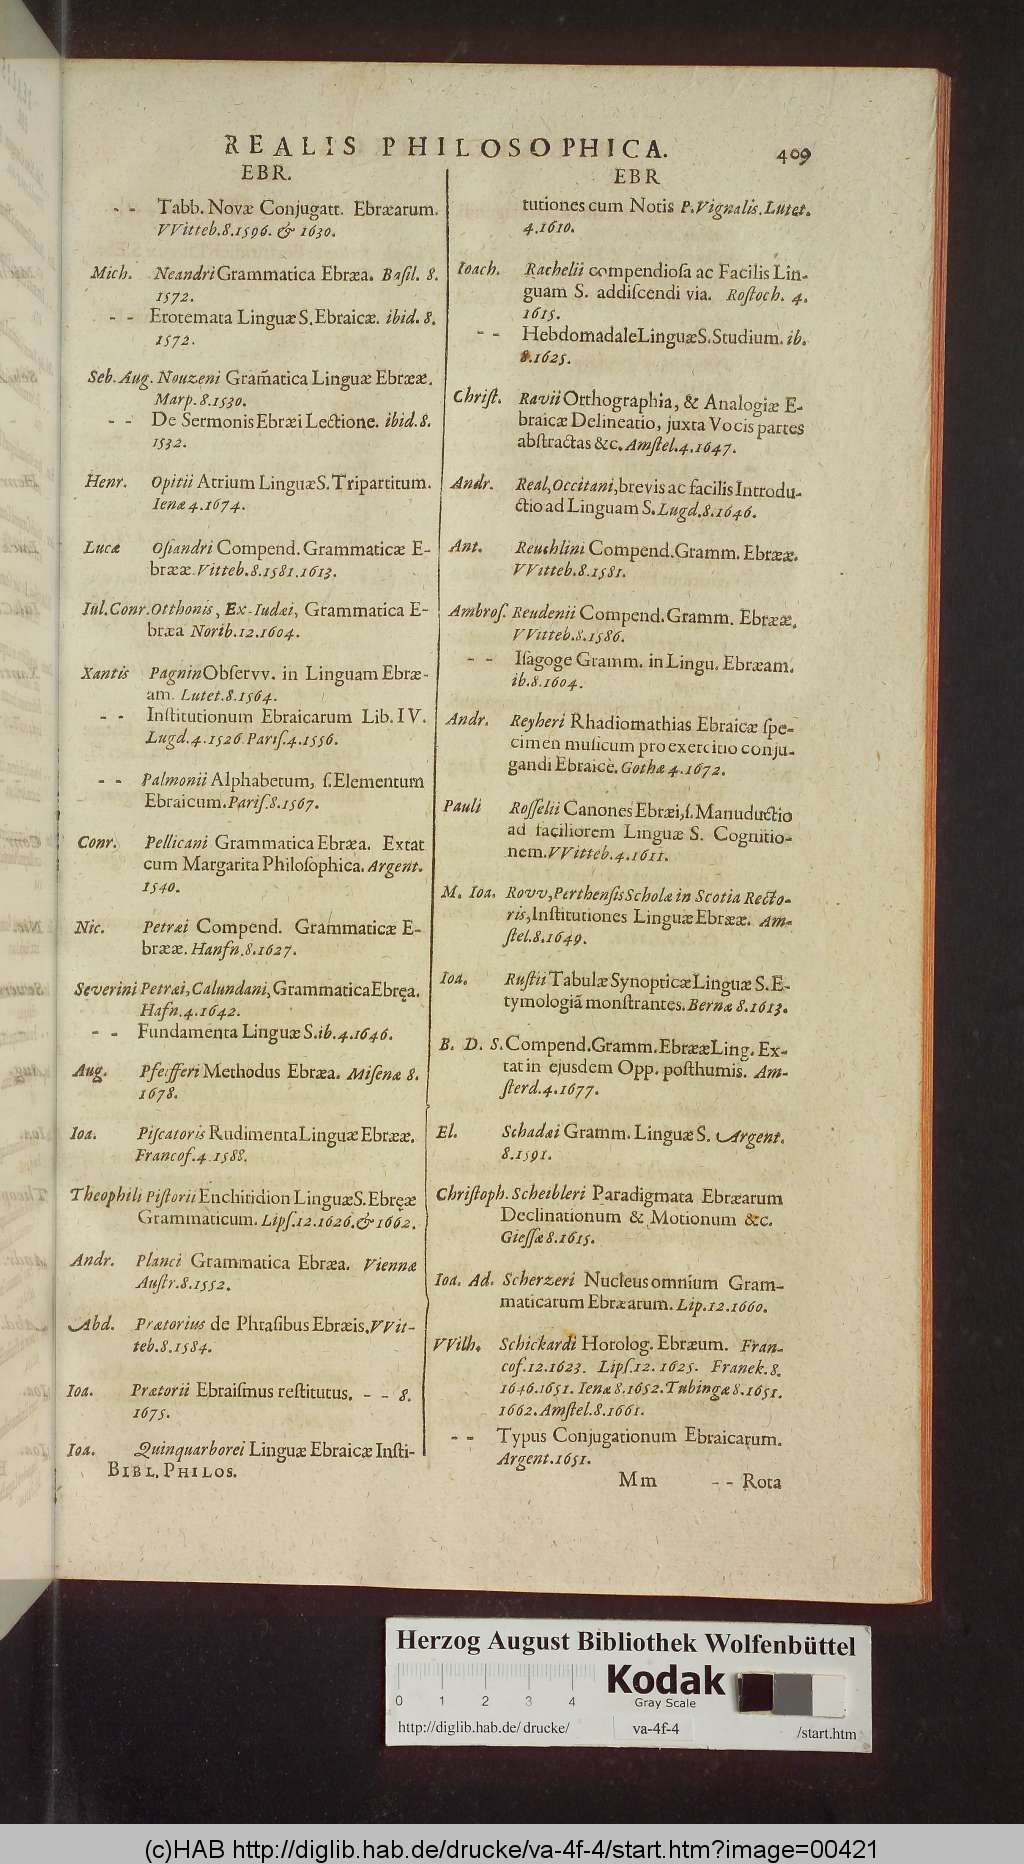 REALIS PHILOSOPHICA. 409
EBR.
- - Tabb. Novæ Conjugatt. Ebræarum.
VVitteb.8.1596. & 1630.
Mich. Neandri Grammatica Ebræa. Basil. 8.
1572.
- - Erotemata Linguæ S. Ebraicæ. ibid. 8.
1572.
Seb. Aug. Nouzeni Gram̃atica Linguæ Ebrææ.
Marp.8.1530.
- - De Sermonis Ebræi Lectione. ibid.8.
1532.
Henr. Opitii Atrium Linguæ S. Tripartitum.
Ienæ 4.1674.
Lucæ Osiandri Compend. Grammaticæ E-
brææ. Vitteb.8.1581.1613.
Iul. Conr. Otthonis, Ex-Iudæi, Grammatica E-
bræa Norib.12.1604.
Xantis Pagnin Observv. in Linguam Ebræ-
am. Lutet.8.1564.
- - Institutionum Ebraicarum Lib. IV.
Lugd.4.1526. Paris.4.1556.
- - Palmonii Alphabetum, s. Elementum
Ebraicum. Paris.8.1567.
Conr. Pellicani Grammatica Ebræa. Extat
cum Margarita Philosophica. Argent.
1540.
Nic. Petræi Compend. Grammaticæ E-
brææ. Hanfn.8.1627.
Severini Petræi, Calundani, Grammatica Ebręa.
Hafn.4.1642.
- - Fundamenta Linguæ S. ib.4.1646.
Aug. Pfeifferi Methodus Ebræa. Misenæ 8.
1678.
Ioa. Piscatoris Rudimenta Linguæ Ebrææ.
Francof.4.1588.
Theophili Pistorii Enchiridion Linguæ S. Ebręæ
Grammaticum. Lips.12.1626. & 1662.
Andr. Planci Grammatica Ebræa. Viennæ
Austr.8.1552.
Abd. Prætorius de Phrasibus Ebræis. VVit-
teb.8.1584.
Ioa. Prætorii Ebraismus restitutus. - - 8.
1675.
Ioa. Quinquarborei Linguæ Ebraicæ Insti-
BIBL. PHILOS.
EBR
tutiones cum Notis P. Vignalis. Lutet.
4.1610.
Ioach. Rachelii compendiosa ac Facilis Lin-
guam S. addiscendi via. Rostoch. 4.
1615.
- - Hebdomadale Linguæ S. Studium. ib.
8.1625.
Christ. Ravii Orthographia, & Analogiæ E-
braicæ Delineatio, juxta Vocis partes
abstractas &c. Amstel.4.1647.
Andr. Real, Occitani, brevis ac facilis Introdu-
ctio ad Linguam S. Lugd.8.1646.
Ant. Reuchlini Compend. Gramm. Ebrææ.
VVitteb.8.1581.
Ambros. Reudenii Compend. Gramm. Ebrææ.
VVitteb.8.1586.
- - Isagoge Gramm. in Lingu. Ebræam.
ib.8.1604.
Andr. Reyheri Rhadiomathias Ebraicæ spe-
cimen musicum pro exercitio conju-
gandi Ebraicè. Gothæ 4.1672.
Pauli Rosselii Canones Ebræi, s. Manuductio
ad faciliorem Linguæ S. Cognitio-
nem. VVitteb.4.1611.
M. Ioa. Rovv, Perthensis Scholæ in Scotia Recto-
ris, Institutiones Linguæ Ebrææ. Am-
stel.8.1649.
Ioa. Rustii Tabulæ Synopticæ Linguæ S. E-
tymologiã monstrantes. Bernæ 8.1613.
B. D. S. Compend. Gramm. Ebrææ Ling. Ex-
tat in ejusdem Opp. posthumis. Am-
sterd.4.1677.
El. Schadæi Gramm. Linguæ S. Argent.
8.1591.
Christoph. Scheibleri Paradigmata Ebræarum
Declinationum & Motionum &c.
Giessæ 8.1615.
Ioa. Ad. Scherzeri Nucleus omnium Gram-
maticarum Ebræarum. Lip.12.1660.
VVilh. Schickardi Horolog. Ebræum. Fran-
cof.12.1623. Lips.12.1625. Franek.8.
1646.1651. Ienæ 8.1652. Tubingæ 8.1651.
1662. Amstel.8.1661.
- - Typus Conjugationum Ebraicarum.
Argent.1651.
Mm - - Rota
Herzog August Bibliothek Wolfenbüttel
Kodak
Gray Scale
0 1 2 3 4
http://diglib.hab.de/drucke/ va-4f-4 /start.htm
(c)HAB http://diglib.hab.de/drucke/va-4f-4/start.htm?image=00421